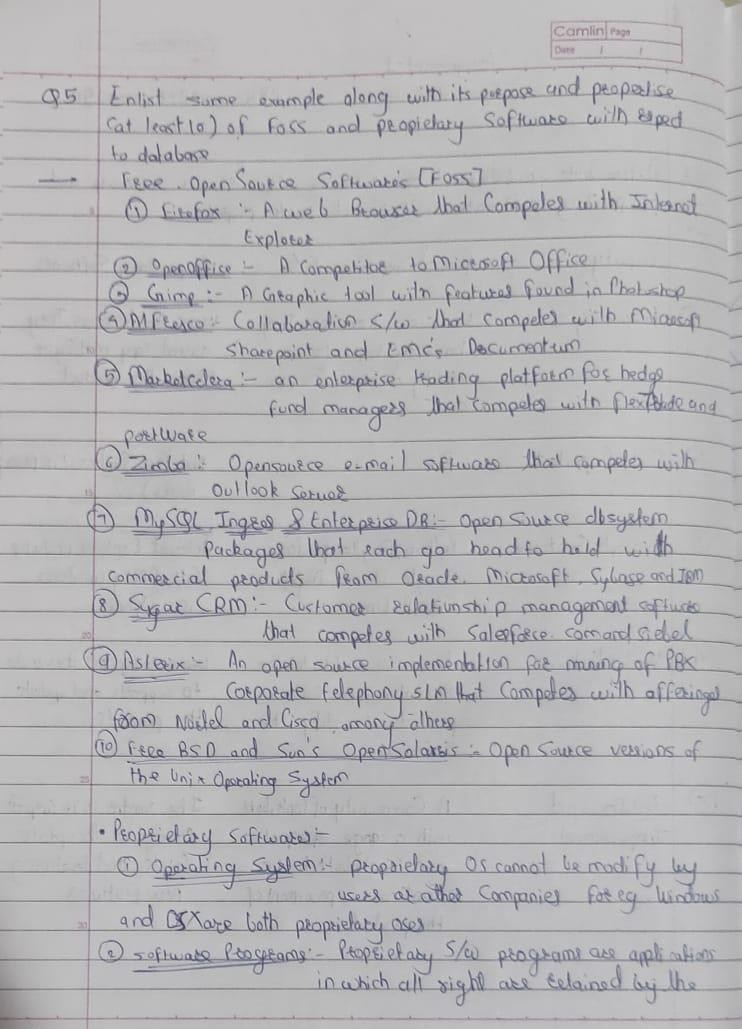 Camlin Page
Date / /
Q5 Enlist some example along with its purpose and properties
(at least 10) of Foss and propietary Software with resped
to database
Free . Open Source Softwares [FOSS]
① Firefox :- A web Browser that Competes with Internet
Explorer
② Openoffice :- A Competitor to Microsoft Office
③ Gimp :- A Graphic tool with features found in Photoshop
④ Alfresco :- Collabaration S/w that competes with Microsoft
Sharepoint and EMC's Documentum
⑤ Marketcetera :- an enterprise trading platform for hedge
fund managers that competes with flextrade and
portware
⑥ Zimba :- Opensource e-mail software that competes with
Outlook Server
⑦ MySQL, Ingres & Enterprise DB :- Open Source dbsystem
Packages that each go head to held with
commercial products from Oracle, Microsoft, Sybase and IBM
⑧ Sugar CRM :- Customer relationship management software
that competes with Salesforce.com and siebel
⑨ Asterix :- An open source implementation for running of PBX
Corporate telephony s/n that Competes with offerings
from Nortel and Cisco, among others
⑩ Free BSD and Sun's OpenSolaris :- Open Source versions of
the Unix Operating System
• Proprietary Softwares :-
① Operating System :- proprietary Os cannot be modify by
users or other Companies for eg Windows
and OSX are both proprietary oses
② Software Programs :- Proprietary S/w programs are applications
in which all right are retained by the